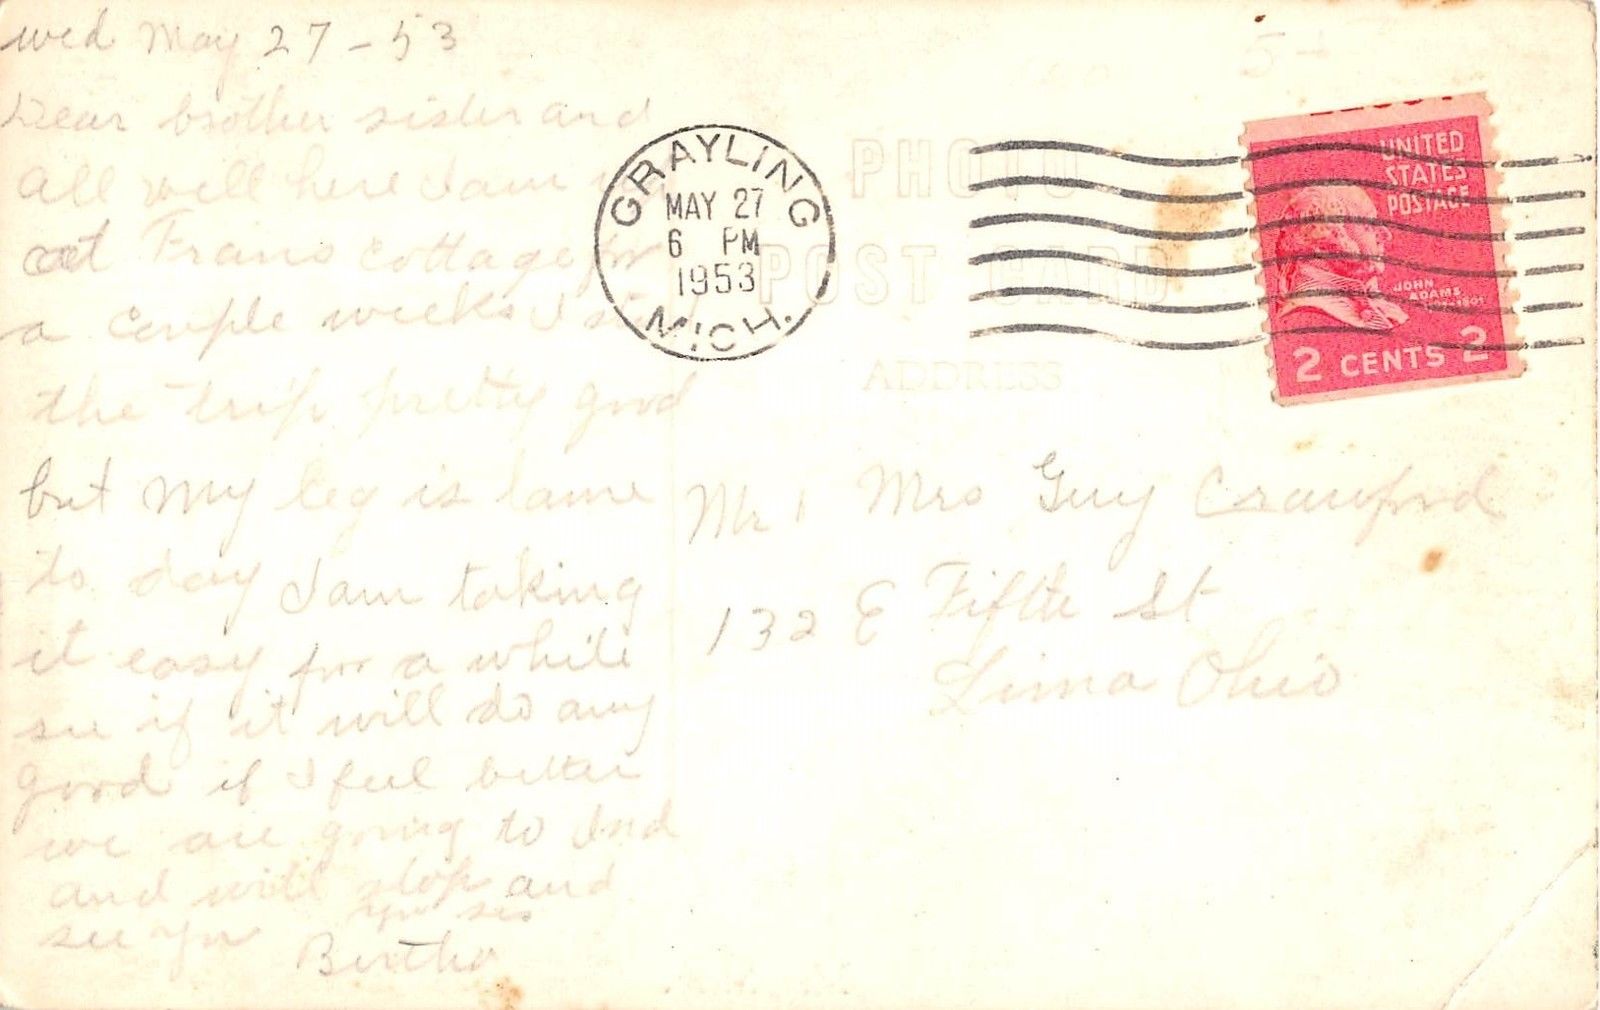 Wed May 27-53
Dear brother sister and
all well here I am
at Frans cottage for
a couple weeks I
the trip pretty good
but my leg is lame
to day I am taking
it easy for a while
see if it will do any
good if I feel better
we are going to Ind
and will stop and
see you
your sis
Bertha
GRAYLING
MAY 27
6 PM
1953
MICH.
PHOTO
POST CARD
ADDRESS
UNITED
STATES
POSTAGE
JOHN
ADAMS
2 CENTS 2
Mr & Mrs Guy Crawford
132 E Fifth St
Lima Ohio